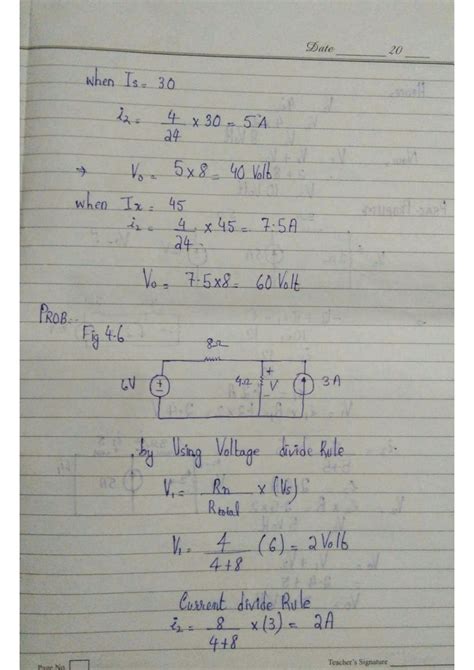 Date 20
when Is = 30
i2 = 4/24 x 30 = 5A
⇒ Vo = 5x8 = 40 Volt
when Ix = 45
i2 = 4/24 x 45 = 7.5A
Vo = 7.5x8 = 60 Volt
PROB:-
Fig 4.6
8Ω
6V ± 4Ω + V - 3A
by Using Voltage divide Rule
V1 = Rn/Rtotal x (Vs)
V1 = 4/4+8 (6) = 2 Volt
Current divide Rule
i2 = 8/4+8 x (3) = 2A
Page No.
Teacher's Signature